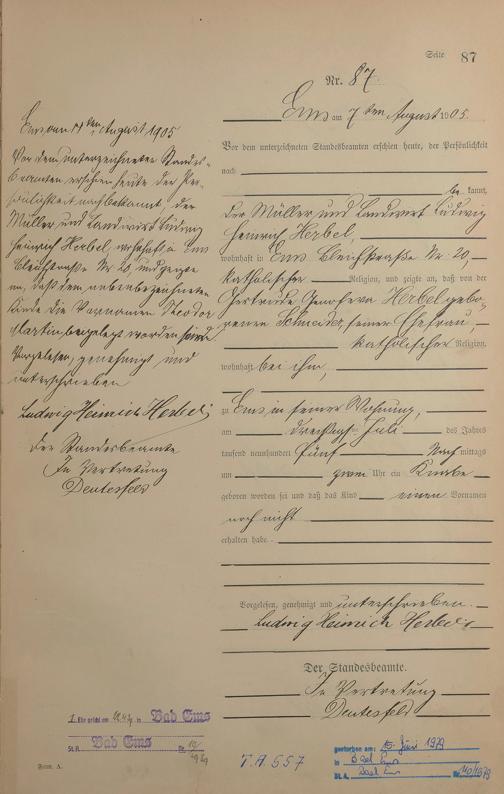 Seite 87
Nr. 87
Ems am 7ten August 1905.
Vor dem unterzeichneten Standesbeamten erschien heute, der Persönlichkeit
nach
bekannt,
der Müller und Landwirt Ludwig
Heinrich Herbel,
wohnhaft in Ems Bleichstraße Nr. 20,
katholischer Religion, und zeigte an, daß von der
Gertrude Genofeva Herbel gebo-
renen Schneider, seiner Ehefrau,
katholischer Religion,
wohnhaft bei ihm,
zu Ems in seiner Wohnung,
am dreißigsten Juli des Jahres
tausend neunhundert fünf Nachmittags
um zwei Uhr ein Knabe
geboren worden sei und daß das Kind einen Vornamen
noch nicht
erhalten habe.
Vorgelesen, genehmigt und unterschrieben.
Ludwig Heinrich Herbel
Der Standesbeamte.
In Vertretung
Ems am 11ten August 1905
Vor dem unterzeichneten Standes-
beamten erschien heute der Per-
sönlichkeit nach bekannt, der
Müller und Landwirt Ludwig
Heinrich Herbel, wohnhaft in Ems
Bleichstraße Nr. 20, und zeigte
an, daß dem nebenbezeichneten
Kinde die Vornamen Theodor
Martin beigelegt worden
Vorgelesen, genehmigt und
unterschrieben
Ludwig Heinrich Herbel
Der Standesbeamte
In Vertretung
1. Ehe geschl. am in Bad Ems
St. A. Bad Ems Nr.
Form. A.
T.A. 557
gestorben am: 15. Juni 1979
in Bad Ems
St. A. Bad Ems Nr. 40/1979